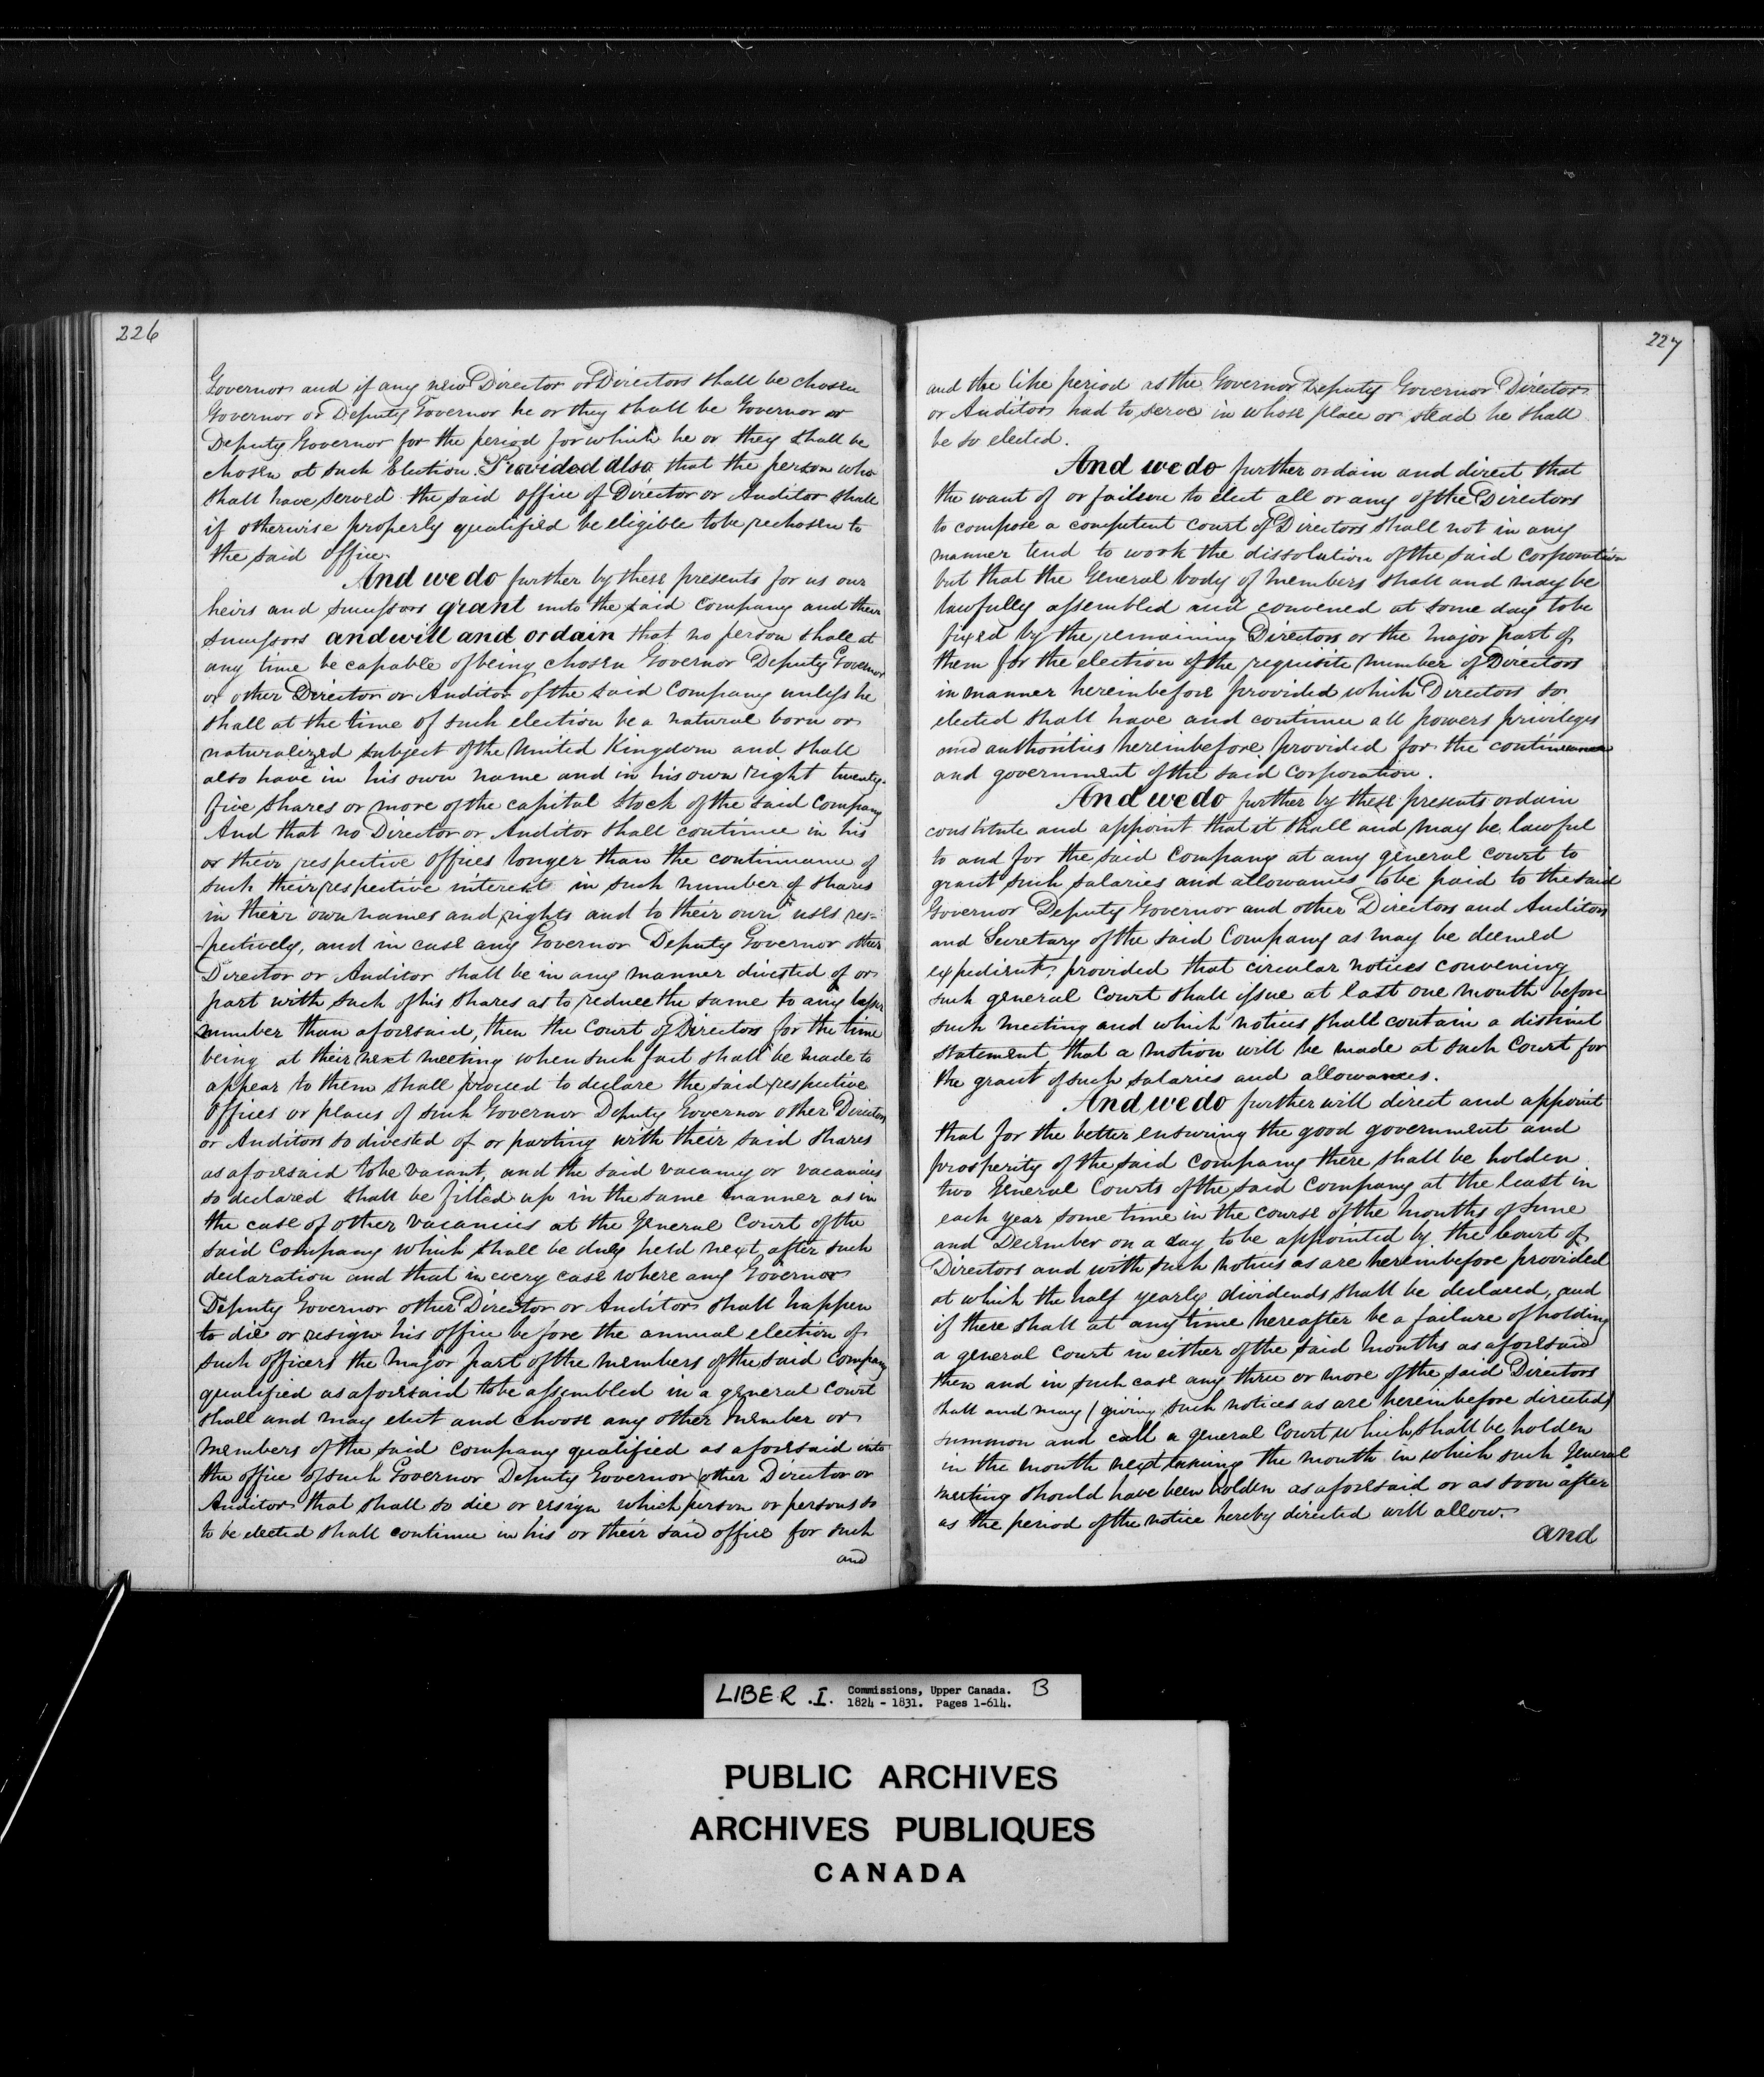 226
Governor and if any new Director or Directors shall be chosen
Governor or Deputy Governor he or they shall be Governor or
Deputy Governor for the period for which he or they shall be
chosen at such Election. Provided also that the person who
shall have served the said office of Director or Auditor shall
if otherwise properly qualified be eligible to be rechosen to
the said office.
And we do further by these presents for us our
heirs and successors grant unto the said Company and their
successors and will and ordain that no person shall at
any time be capable of being chosen Governor Deputy Governor
or other Director or Auditor of the said Company unless he
shall at the time of such election be a natural born or
naturalized subject of the United Kingdom and shall
also have in his own name and in his own right twenty-
five shares or more of the capital stock of the said Company
And that no Director or Auditor shall continue in his
or their respective offices longer than the continuance of
such their respective interest in such number of shares
in their own names and rights and to their own uses res-
-pectively, and in case any Governor Deputy Governor other
Director or Auditor shall be in any manner divested of or
part with such of his shares as to reduce the same to any lesser
number than aforesaid, then the Court of Directors for the time
being at their next meeting when such fact shall be made to
appear to them shall proceed to declare the said respective
offices or places of such Governor Deputy Governor other Directors
or Auditors so divested of or parting with their said shares
as aforesaid to be vacant, and the said vacancy or vacancies
so declared shall be filled up in the same manner as in
the case of other vacancies at the General Court of the
said Company which shall be duly held next after such
declaration and that in every case where any Governor
Deputy Governor other Director or Auditor shall happen
to die or resign his office before the annual election of
such officers the major part of the members of the said Company
qualified as aforesaid to be assembled in a general Court
shall and may elect and choose any other member or
members of the said Company qualified as aforesaid into
the office of such Governor Deputy Governor other Director or
Auditor that shall so die or resign which person or persons so
to be elected shall continue in his or their said office for such
and
227
and the like period as the Governor Deputy Governor Directors
or Auditors had to serve in whose place or stead he shall
be so elected.
And we do further ordain and direct that
the want of or failure to elect all or any of the Directors
to compose a competent Court of Directors shall not in any
manner tend to work the dissolution of the said Corporation
but that the General body of members shall and may be
lawfully assembled and convened at some day to be
fixed by the remaining Directors or the major part of
them for the election of the requisite number of Directors
in manner hereinbefore provided which Directors so
elected shall have and continue all powers privileges
and authorities hereinbefore provided for the continuance
and government of the said Corporation.
And we do further by these presents ordain
constitute and appoint that it shall and may be lawful
to and for the said Company at any general Court to
grant such salaries and allowances to be paid to the said
Governor Deputy Governor and other Directors and Auditors
and Secretary of the said Company as may be deemed
expedient, provided that circular notices convening
such general Court shall issue at last one month before
such meeting and which notices shall contain a distinct
statement that a motion will be made at such Court for
the grant of such salaries and allowances.
And we do further will direct and appoint
that for the better ensuring the good government and
prosperity of the said Company there shall be holden
two General Courts of the said Company at the least in
each year some time in the course of the months of June
and December on a day to be appointed by the Court of
Directors and with such notices as are hereinbefore provided
at which the half yearly dividends shall be declared, and
if there shall at any time hereafter be a failure of holding
a general Court in either of the said months as aforesaid
then and in such case any three or more of the said Directors
shall and may (giving such notices as are hereinbefore directed)
summon and call a general Court which shall be holden
in the month next the month in which such general
meeting should have been holden as aforesaid or as soon after
as the period of the notice hereby directed will allow.
and
LIBER .I. Commissions, Upper Canada. B
1824 - 1831. Pages 1-614.
PUBLIC ARCHIVES
ARCHIVES PUBLIQUES
CANADA